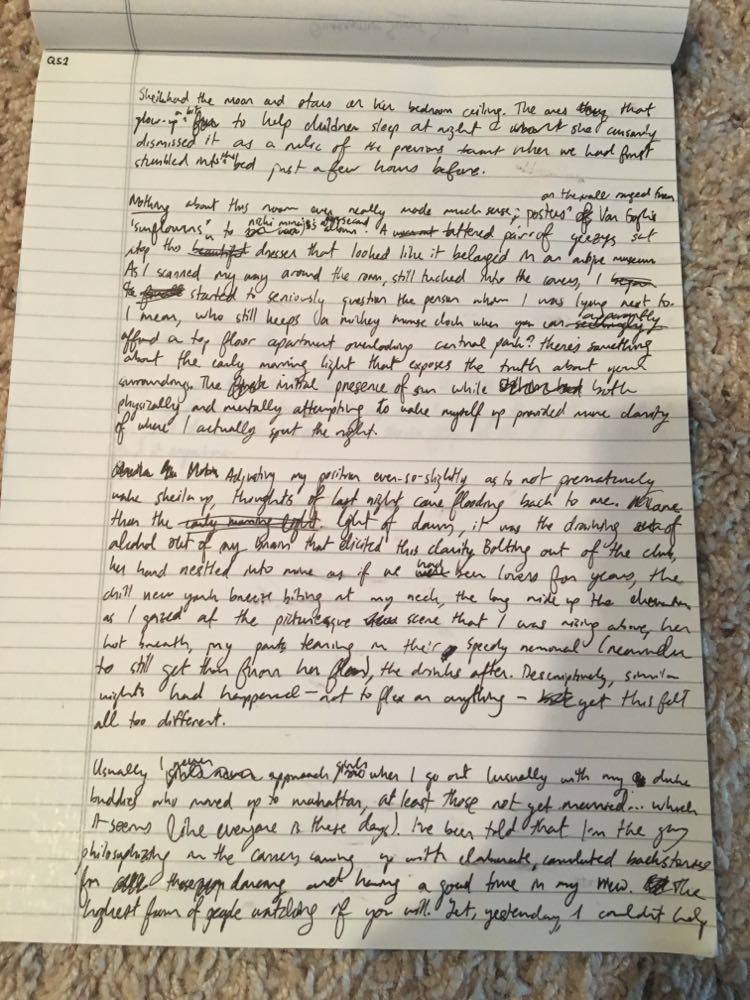 QS2
Sheila had the moon and stars on her bedroom ceiling. The ones that
glow-up a bit to help children sleep at night & she
dismissed it as a relic of the previous tenant when we had first
stumbled into the bed just a few hours before.
on the wall ranged from
Nothing about this room really made much sense; posters of Van Gogh's
"sunflowers" to nicki minaj's second album. A battered pair of yeezys sat
atop the dresser that looked like it belonged in an antique museum
As I scanned my way around the room, still tucked into the covers, I
started to seriously question the person whom I was lying next to.
I mean, who still keeps a mickey mouse clock when you can apparently
afford a top floor apartment overlooking central park? there's something
about the early morning light that exposes the truth about your
surroundings. The initial presence of sun while both
physically and mentally attempting to wake myself up provided more clarity
of where I actually spent the night.
Adjusting my position ever-so-slightly as to not prematurely
wake sheila up, thoughts of last night came flooding back to me. More
than the early morning light. light of dawn, it was the draining of
alcohol out of my brain that elicited this clarity. Bolting out of the club,
her hand nestled into mine as if we had been lovers for years, the
chill new york breeze biting at my neck, the long ride up the elevator
as I gazed at the picturesque scene that I was rising above, her
hot breath, my pants tearing in their speedy removal (reminder
to still get them from her floor), the drinks after. Descriptively, similar
nights had happened – not to flex or anything – yet this felt
all too different.
Usually I never approach girls when I go out (usually with my duke
buddies who moved up to mahattan, at least those not yet married... which
it seems like everyone is these days). I've been told that I'm the guy
philosophizing in the corners coming up with elaborate, convoluted backstories
for those dancing and having a good time in my view. The
highest form of people watching if you will. Yet, yesterday, I couldn't help